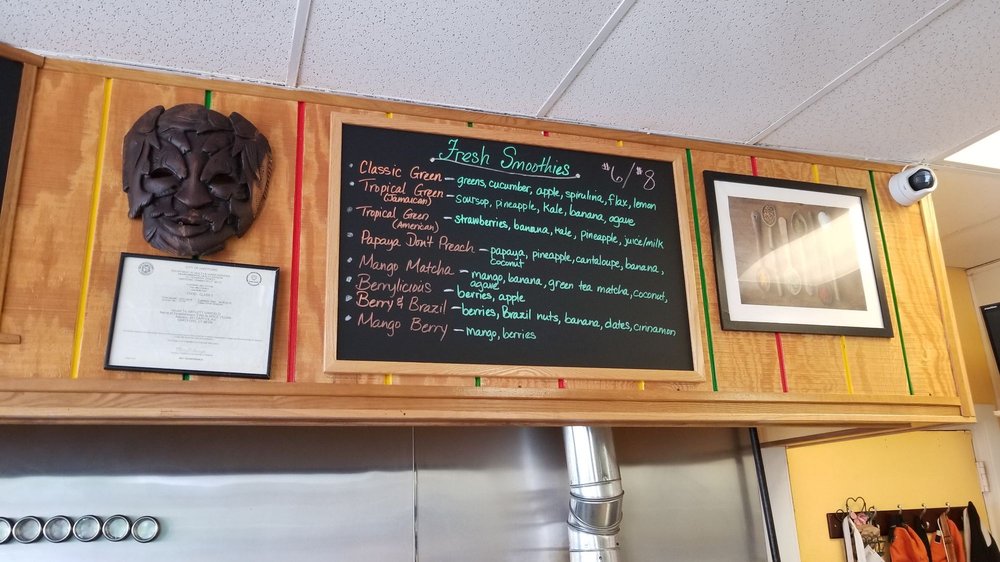 Fresh Smoothies $6/$8
Classic Green - greens, cucumber, apple, spirulina, flax, lemon
Tropical Green - soursop, pineapple, Kale, banana, agave
(Jamaican)
Tropical Green - strawberries, banana, kale, Pineapple, juice/milk
(American)
Papaya Don't Preach - papaya, pineapple, cantaloupe, banana,
coconut
Mango Matcha - mango, banana, green tea matcha, coconut,
agave
Berrylicious - berries, apple
Berry & Brazil - berries, Brazil nuts, banana, dates, cinnamon
Mango Berry - mango, berries